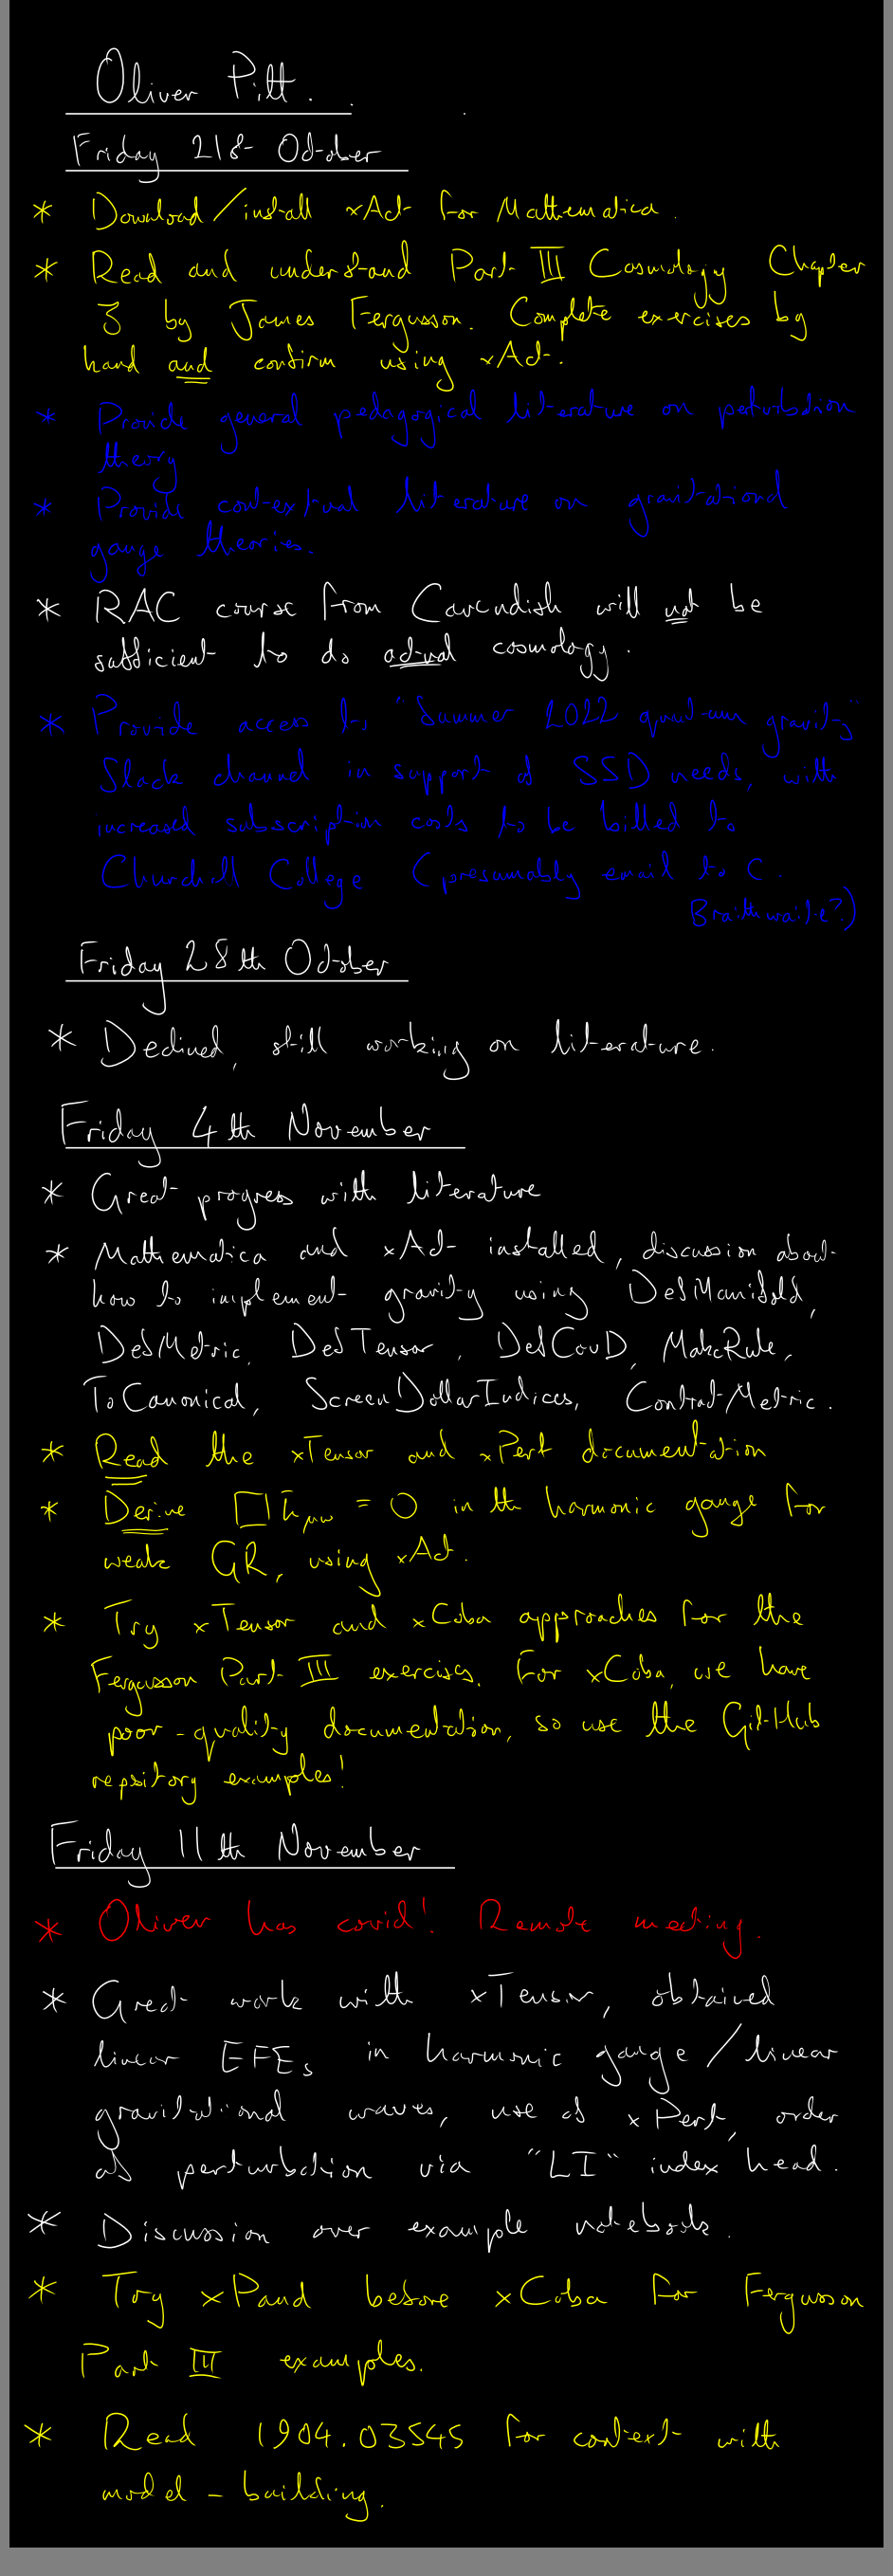 Oliver Pitt.
Friday 21st October
* Download/install xAct for Mathematica.
* Read and understand Part III Cosmology Chapter
3 by James Fergusson. Complete exercises by
hand and confirm using xAct.
* Provide general pedagogical literature on perturbation
theory
* Provide contextual literature on gravitational
gauge theories.
* RAC course from Cavendish will not be
sufficient to do actual cosmology.
* Provide access to "Summer 2022 quantum gravity"
Slack channel in support of SSD needs, with
increased subscription costs to be billed to
Churchill College (presumably email to C.
Braithwaite?)
Friday 28th October
* Declined, still working on literature.
Friday 4th November
* Great progress with literature
* Mathematica and xAct installed, discussion about
how to implement gravity using DefManifold,
DefMetric, DefTensor, DefCovD, MakeRule,
ToCanonical, ScreenDollarIndices, ContractMetric.
* Read the xTensor and xPert documentation
* Derive □h̄μν = 0 in the harmonic gauge for
weak GR, using xAct.
* Try xTensor and xCoba approaches for the
Fergusson Part III exercises. For xCoba, we have
poor-quality documentation, so use the GitHub
repository examples!
Friday 11th November
* Oliver has covid! Remote meeting.
* Great work with xTensor, obtained
linear EFEs in harmonic gauge/linear
gravitational waves, use of xPert, order
of perturbation via "LI" index head.
* Discussion over example notebooks.
* Try xPand before xCoba for Fergusson
Part III examples.
* Read 1904.03545 for context with
model-building.